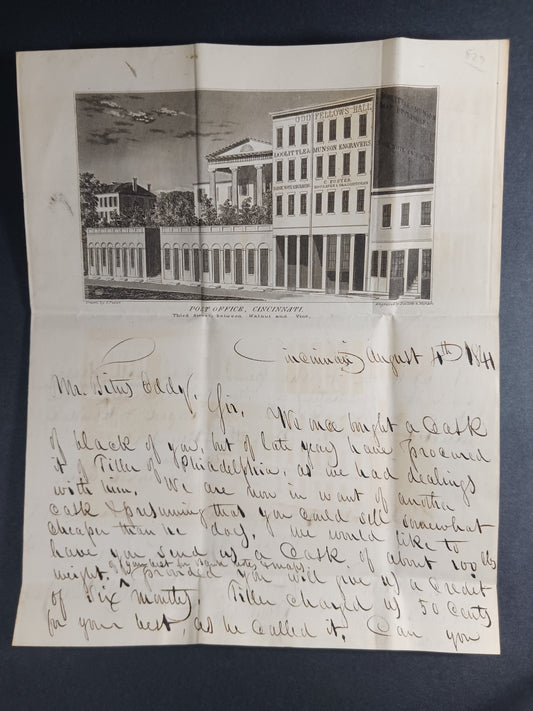 527
ODD FELLOWS HALL
DOOLITTLE & MUNSON ENGRAVERS
BANK NOTE ENGRAVERS
C. FOSTER
POST OFFICE, CINCINNATI.
Third Street, between Walnut and Vine.
Cincinnati August 4th 1841
Mr. Titus Eddy,
Sir, We once bought a Cask
of black of you, but of late years have procured
it of Tiller of Philadelphia, as we had dealings
with him. We are now in want of another
cask & presuming that you could sell somewhat
cheaper than he does, we would like to
have you send us a Cask of about 100 lbs
of your best for Bank notes & maps
weight. provided you will give us a Credit
of Six months. Tiller charged us 50 Cents
for your best, as he called it. Can you